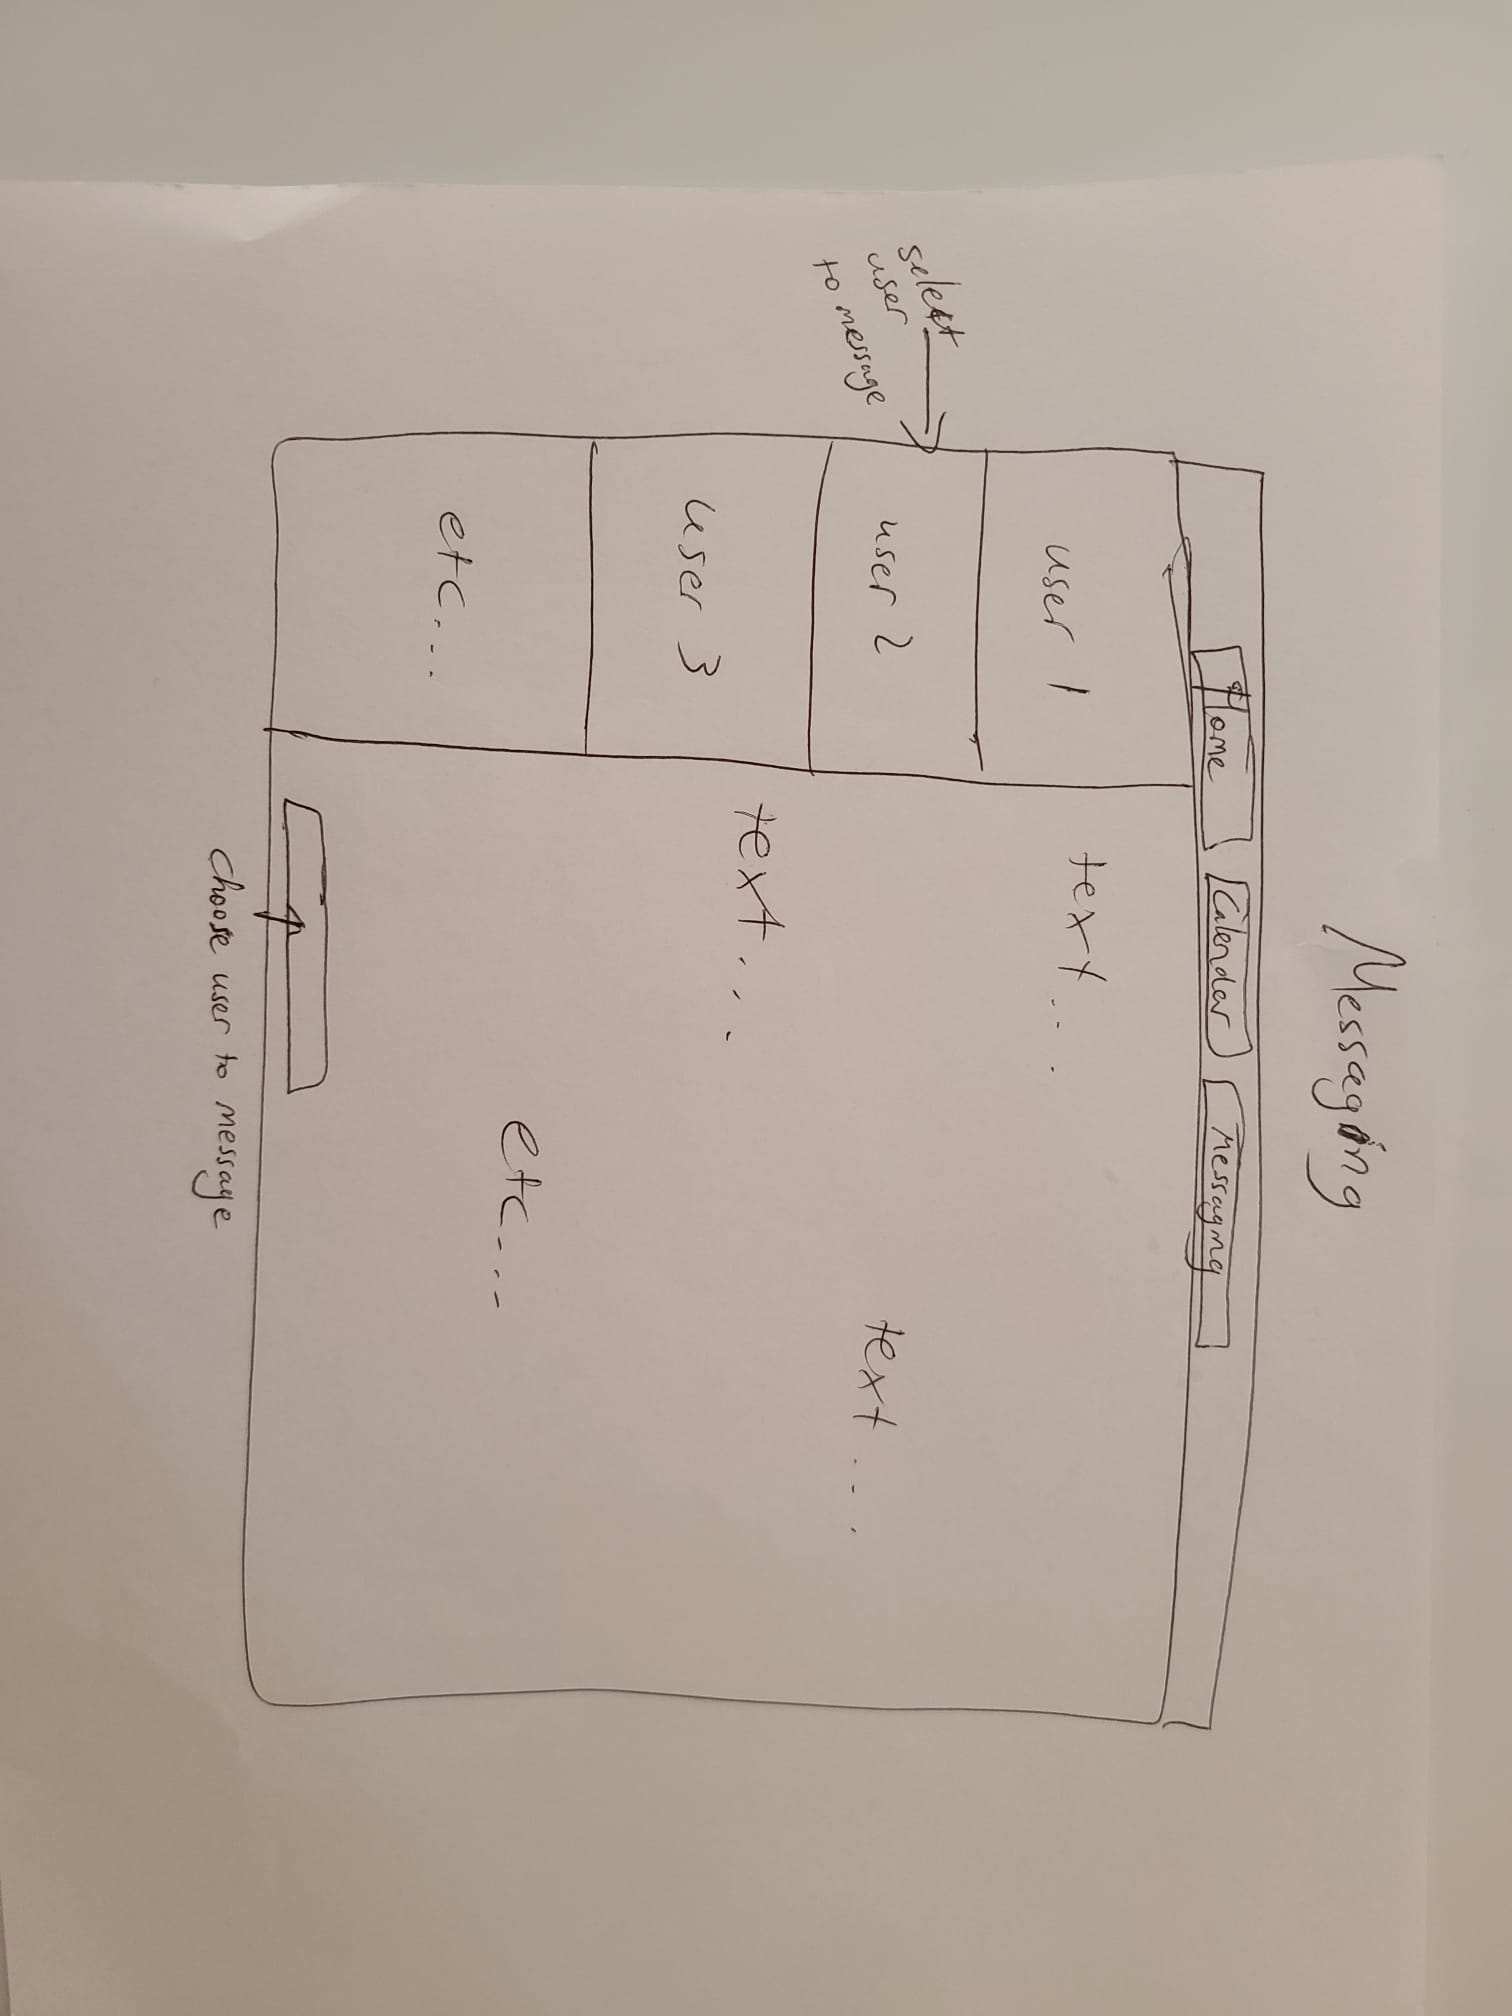 Messaging
Home
Calendar
Messaging
select
user
to message
user 1
user 2
user 3
etc...
text...
text...
text...
etc...
choose user to message